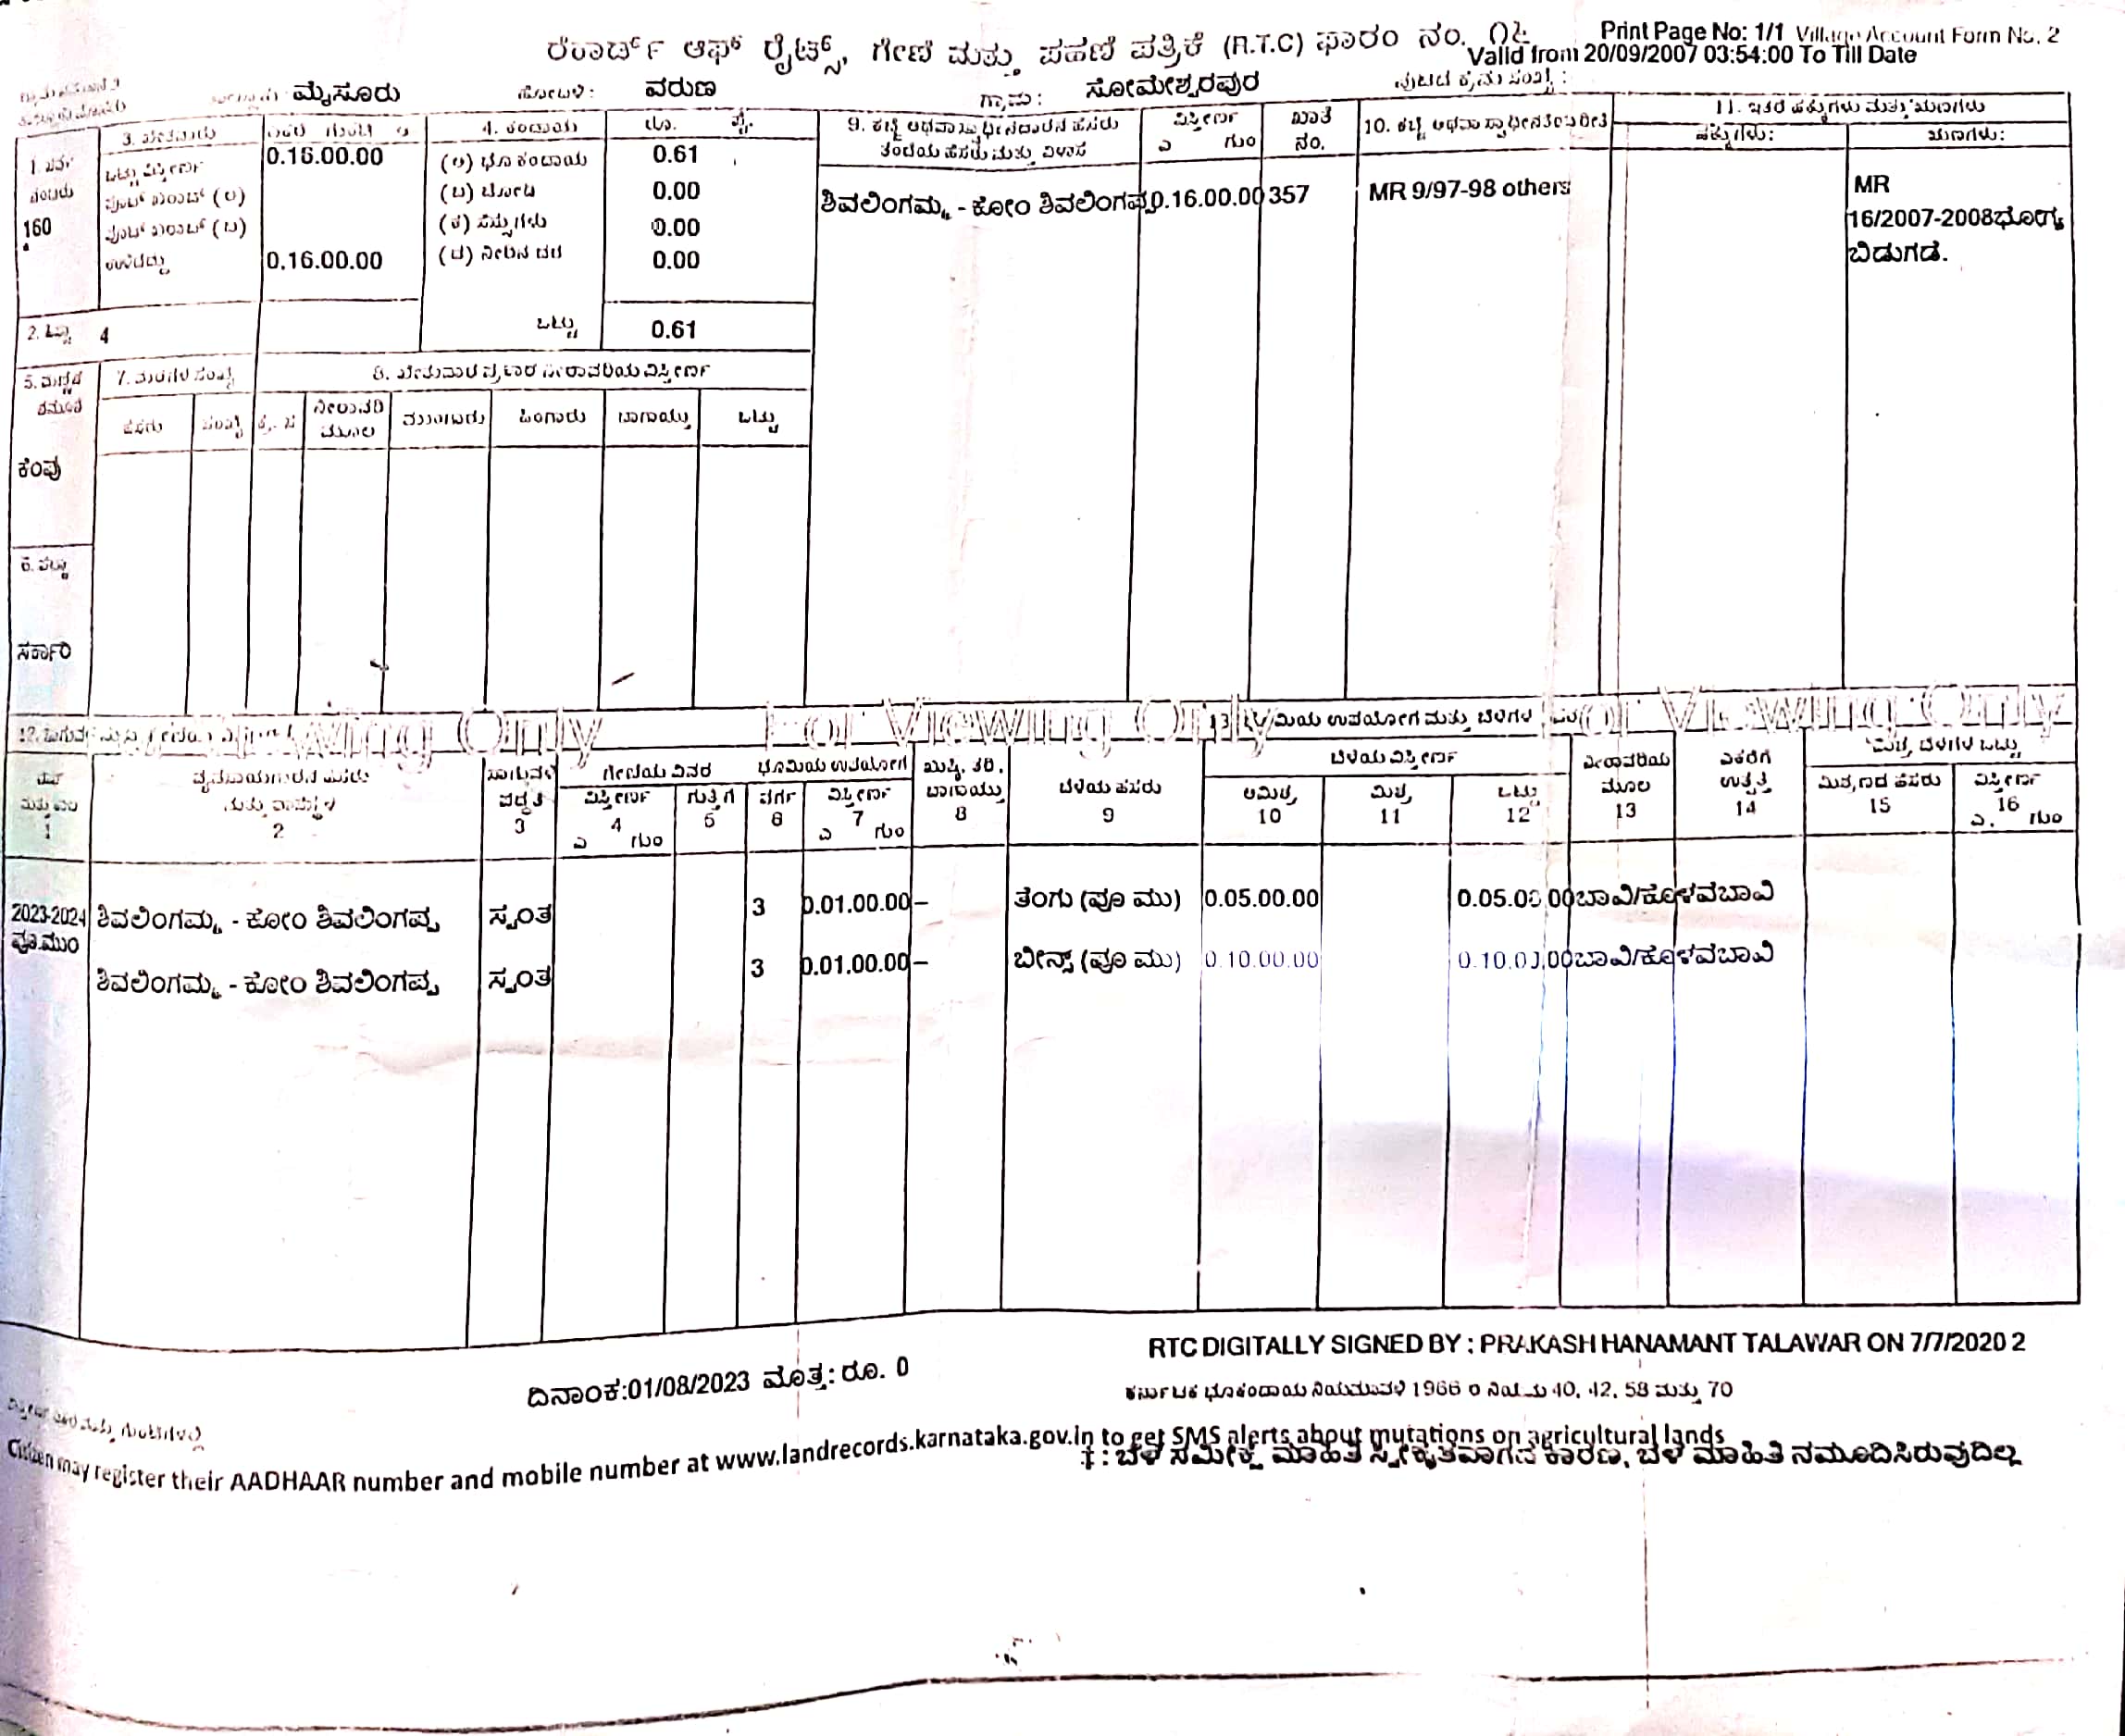 ರೆಕಾರ್ಡ್ ಆಫ್ ರೈಟ್ಸ್, ಗೇಣಿ ಮತ್ತು ಪಹಣಿ ಪತ್ರಿಕೆ (R.T.C) ಫಾರಂ ನಂ. ೧೬ Print Page No: 1/1 Village Account Form No. 2
Valid from 20/09/2007 03:54:00 To Till Date
ಮೈಸೂರು ಹೋಬಳಿ: ವರುಣ ಗ್ರಾಮ: ಸೋಮೇಶ್ವರಪುರ ಪುಟದ ಕ್ರಮ ಸಂಖ್ಯೆ:
4. ಕಂದಾಯ ರೂ. ಪೈ. 9. ಕಬ್ಜೆ ಅಥವಾ ಸ್ವಾಧೀನದಾರನ ಹೆಸರು ತಂದೆಯ ಹೆಸರು ಮತ್ತು ವಿಳಾಸ ವಿಸ್ತೀರ್ಣ ಎ ಗುಂ ಖಾತೆ ನಂ. 10. ಕಬ್ಜೆ ಅಥವಾ ಸ್ವಾಧೀನತೆಯ ರೀತಿ 11. ಇತರೆ ಹಕ್ಕುಗಳು ಮತ್ತು ಋಣಗಳು
ಹಕ್ಕುಗಳು: ಋಣಗಳು:
ಒಟ್ಟು ವಿಸ್ತೀರ್ಣ 0.16.00.00 (ಅ) ಭೂ ಕಂದಾಯ 0.61
(ಬ) 0.00 ಶಿವಲಿಂಗಮ್ಮ - ಕೋಂ ಶಿವಲಿಂಗಪ್ಪ 0.16.00.00 357 MR 9/97-98 others MR
160 0.00 16/2007-2008ಭೋಗ್ಯ
ಉಳಿದದ್ದು 0.16.00.00 (ಡ) ನೀರಿನ ದರ 0.00 ಬಿಡುಗಡೆ.
4 ಒಟ್ಟು 0.61
5. ಮಣ್ಣಿನ ನಮೂನೆ 7. ಮರಗಳ ಸಂಖ್ಯೆ
ಹೆಸರು ಸಂಖ್ಯೆ ಕ್ರ. ಸಂ ನೀರಾವರಿ ಮೂಲ ಮುಂಗಾರು ಹಿಂಗಾರು ಬಾಗಾಯ್ತು ಒಟ್ಟು
ಕೆಂಪು
6. ಪಟ್ಟಾ
ಸರ್ಕಾರಿ
For Viewing Only
ಗೇಣಿಯ ವಿವರ ಭೂಮಿಯ ಉಪಯೋಗ ಖುಷ್ಕಿ, ತರಿ, ಬಾಗಾಯ್ತು ಬೆಳೆಯ ಹೆಸರು ಬೆಳೆಯ ವಿಸ್ತೀರ್ಣ ನೀರಾವರಿಯ ಮೂಲ ಎಕರೆಗೆ ಉತ್ಪತ್ತಿ ಮಿಶ್ರ ಬೆಳೆಗಳ ಒಟ್ಟು
ವಿಸ್ತೀರ್ಣ ಗುತ್ತಿಗೆ ವರ್ಗ ವಿಸ್ತೀರ್ಣ ಅಮಿಶ್ರ ಮಿಶ್ರ ಒಟ್ಟು ಮಿಶ್ರಣದ ಹೆಸರು ವಿಸ್ತೀರ್ಣ
1 2 3 4 5 6 7 8 9 10 11 12 13 14 15 16
ಎ ಗುಂ ಎ ಗುಂ ಎ. ಗುಂ
2023-2024 ಶಿವಲಿಂಗಮ್ಮ - ಕೋಂ ಶಿವಲಿಂಗಪ್ಪ ಸ್ವಂತ 3 0.01.00.00 – ತೆಂಗು (ಪೂ ಮು) 0.05.00.00 0.05.00.00 ಬಾವಿ/ಕೊಳವಬಾವಿ
ಪೂ.ಮುಂ
ಶಿವಲಿಂಗಮ್ಮ - ಕೋಂ ಶಿವಲಿಂಗಪ್ಪ ಸ್ವಂತ 3 0.01.00.00 – ಬೀನ್ಸ್ (ಪೂ ಮು) 0.10.00.00 0.10.00.00 ಬಾವಿ/ಕೊಳವಬಾವಿ
RTC DIGITALLY SIGNED BY : PRAKASH HANAMANT TALAWAR ON 7/7/2020 2
ದಿನಾಂಕ:01/08/2023 ಮೊತ್ತ: ರೂ. 0
ಕರ್ನಾಟಕ ಭೂಕಂದಾಯ ನಿಯಮಾವಳಿ 1966 ರ ನಿಯಮ 40, 42, 58 ಮತ್ತು 70
Citizen may register their AADHAAR number and mobile number at www.landrecords.karnataka.gov.in to get SMS alerts about mutations on agricultural lands
‡ : ಬೆಳೆ ಸಮೀಕ್ಷೆ ಮಾಹಿತಿ ಸ್ವೀಕೃತವಾಗದ ಕಾರಣ, ಬೆಳೆ ಮಾಹಿತಿ ನಮೂದಿಸಿರುವುದಿಲ್ಲ